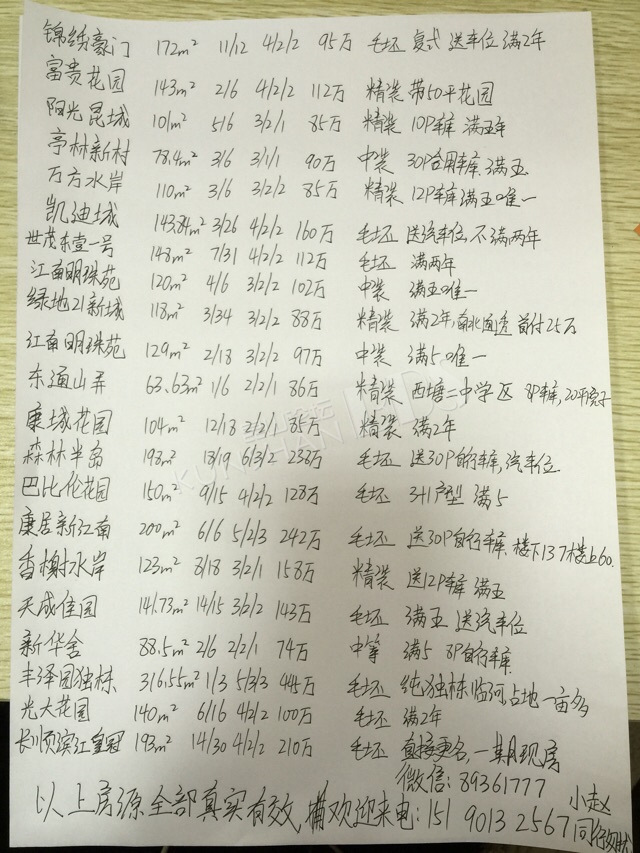 锦绣豪门 172m² 11/12 4/2/2 95万 毛坯 复式 送车位 满2年
富贵花园 143m² 2/6 4/2/2 112万 精装 带50平花园
阳光昆城 101m² 5/6 3/2/1 85万 精装 10P车库 满五年
亭林新村 78.4m² 3/6 3/1/1 90万 中装 30P合用车库.满五
万方水岸 110m² 3/6 3/2/2 85万 精装 12P车库满五唯一
凯迪城 143.84m² 3/26 4/2/2 160万 毛坯 送汽车位,不满两年
世茂东壹一号 148m² 7/31 4/2/2 112万 毛坯 满两年
江南明珠苑 120m² 4/6 3/2/2 102万 中装 满五唯一
绿地21新城 118m² 3/34 3/2/2 88万 精装 满2年,南北通透 首付25万
江南明珠苑 129m² 2/18 3/2/2 97万 中装 满5唯一
东通山弄 63.63m² 1/6 2/2/1 86万 精装 西塘二中学区 8P车库,20平院子
康城花园 104m² 12/18 2/2/1 85万 精装 满2年
森林半岛 198m² 18/19 6/3/2 238万 毛坯 送30P自行车库,汽车位
巴比伦花园 150m² 9/15 4/2/2 128万 毛坯 3+1户型 满5
康居新江南 200m² 6/6 5/2/3 242万 毛坯 送30P自行车库.楼下137楼上60.
香榭水岸 123m² 8/18 3/2/1 158万 精装 送12P车库 满五
天成佳园 141.73m² 14/15 3/2/2 143万 毛坯 满五 送汽车位
新华舍 88.5m² 2/6 2/2/1 74万 中等 满5 8P自行车库
丰泽园独栋 316.55m² 1/3 5/3/3 445万 毛坯 纯独栋临河占地一亩多
光大花园 140m² 6/16 4/2/2 100万 毛坯 满2年
长顺滨江皇冠 193m² 14/30 4/2/2 210万 毛坯 直接更名,一期现房
微信:89361777
以上房源全部真实有效,欢迎来电:151 9013 2567 小赵